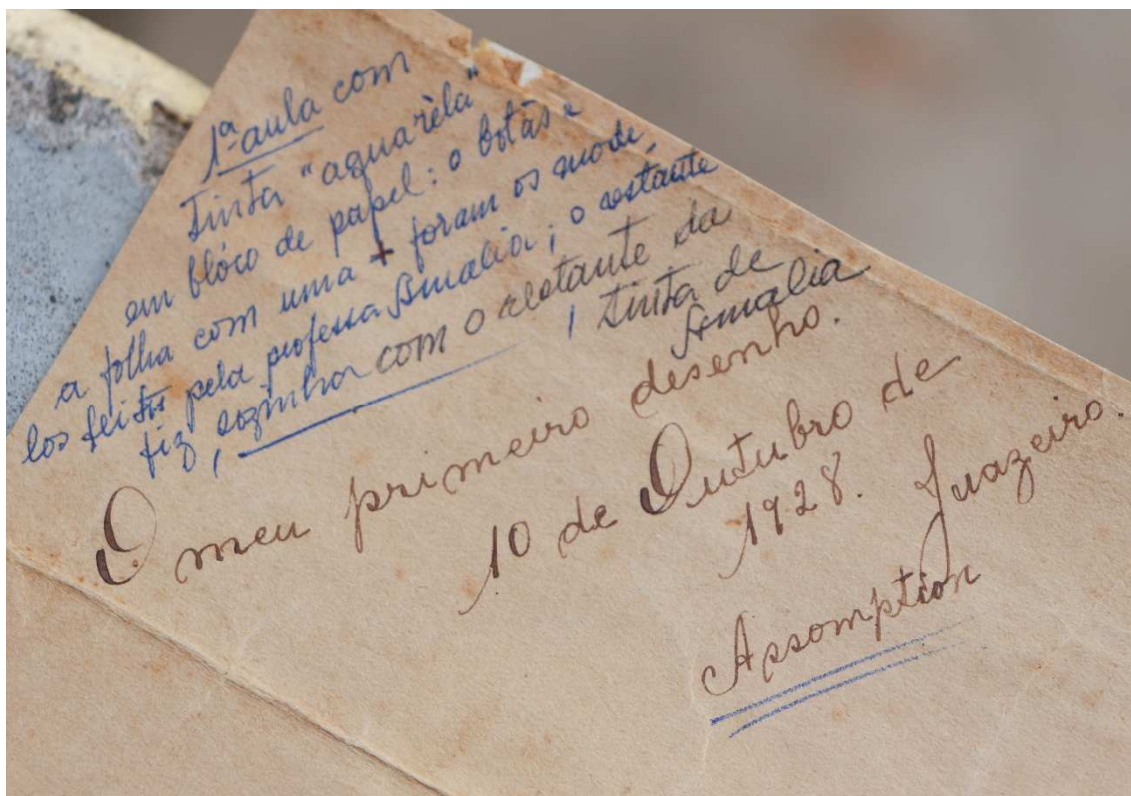 1ª aula com
tinta "aquarèla"
em blóco de papel: o botão e
a folha com uma + foram os mode-
los feitos pela professa Amalia; o restante
fiz, sozinha com o restante da
, tinta de
Amalia
O meu primeiro desenho.
10 de Outubro de
1928. Juazeiro.
Assomption